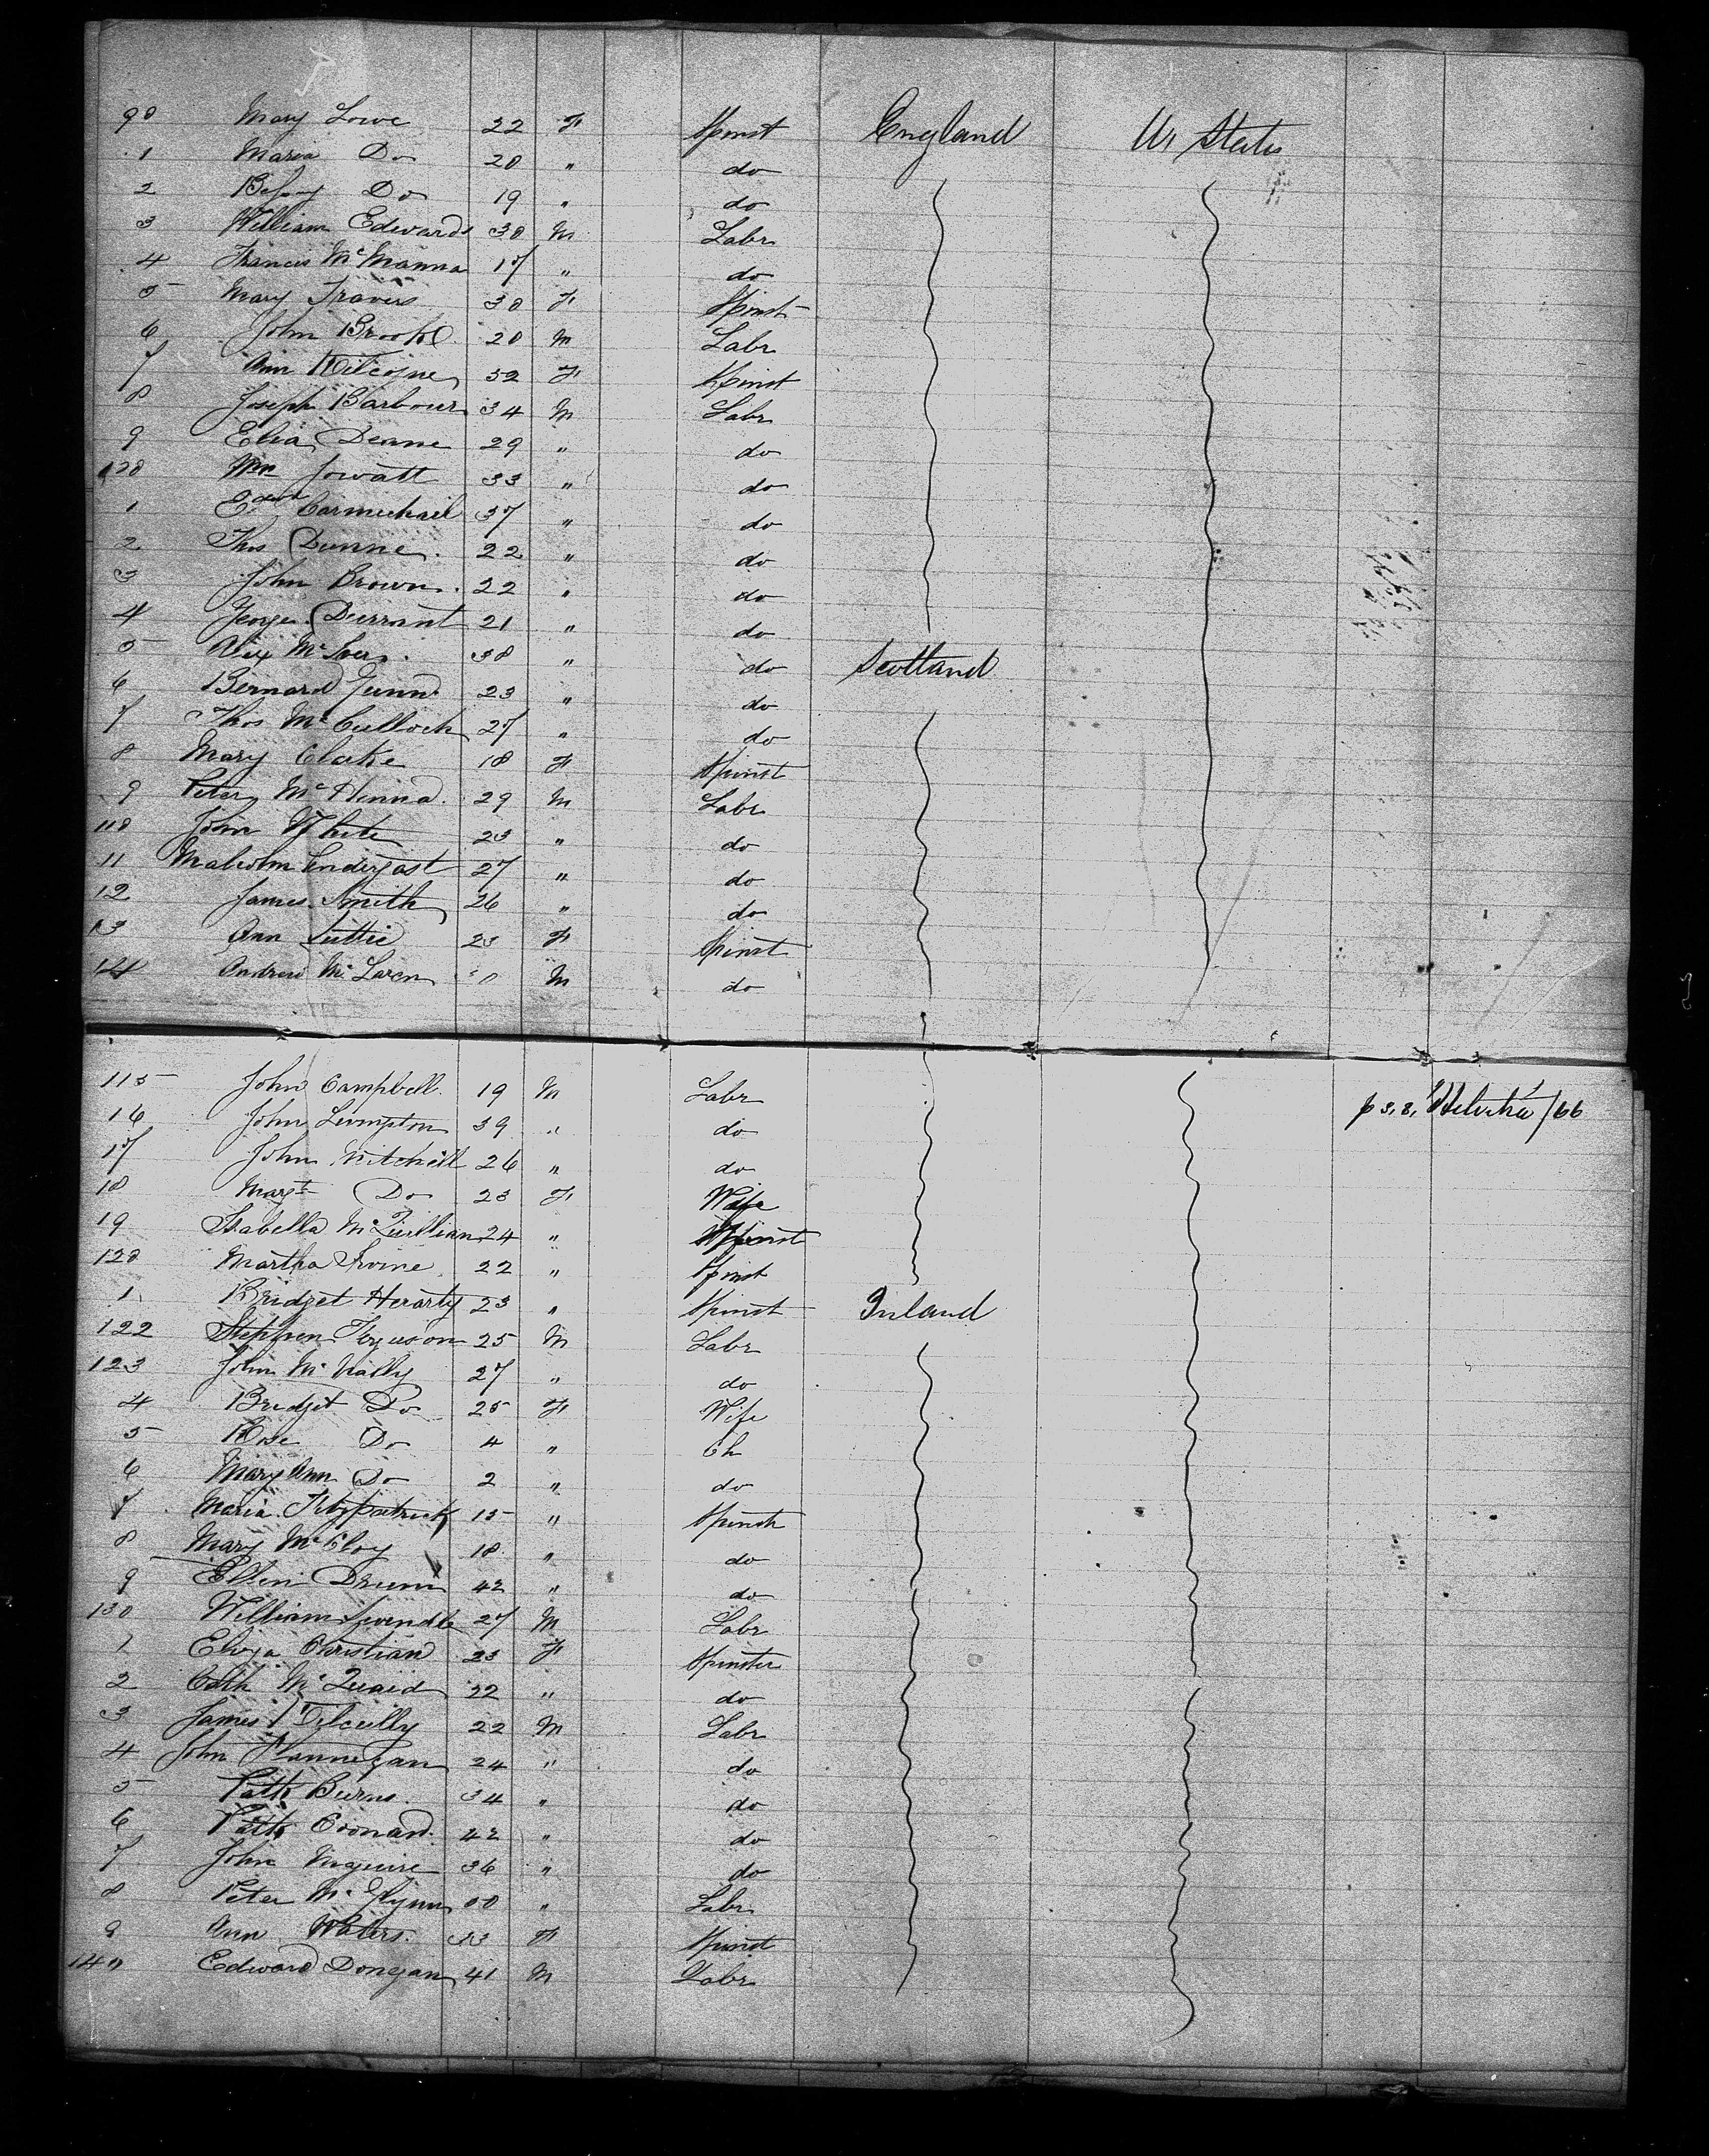 90 Mary Lowe 22 F Spinst England U, States
1 Maria Do 20 " do
2 Betsy Do 19 " do
3 William Edwards 30 M Labr
4 Francis McManna 17 " do
5 Mary Travers 30 F Spinst
6 John Brooke 20 M Labr
7 Ann 32 F Spinst
8 Joseph Barbour 34 M Labr
9 Deane 29 " do
100 Wm Jowatt 33 " do
1 Edwd Carmichael 37 " do
2 Thos Dunne 22 " do
3 John Brown 22 " do
4 George Durrant 21 " do
5 Alex McIver 38 " do Scotland
6 Bernard Gunn 23 " do
7 Thos McCulloch 27 " do
8 Mary Clarke 18 F Spinst
9 Peter McHenna 29 M Labr
110 John White 23 " do
11 Malcolm Endergast 27 " do
12 James Smith 26 " do
13 Ann Luttie 23 F Spinst
14 Andrew McLaren M do
115 John Campbell 19 M Labr p s. s. Helvetia /66
16 John Lumpton 39 " do
17 John Mitchell 26 " do
18 Margt Do 23 F Wife
19 Isabella McQuillian 24 " Spinst
120 Martha Irvine 22 " Spinst
1 Bridget Herarty 23 " Spinst Ireland
122 Stephen Ferguson 25 M Labr
123 John McNally 27 " do
4 Bridget Do 25 F Wife
5 Rose Do 4 " Ch
6 Mary Ann Do 2 " do
7 Maria Fitzpatrick 15 " Spinst
8 Mary McCloy 18 " do
9 Ellen Drum 42 " do
130 William Swindle 27 M Labr
1 Eliza Christian 23 F Spinster
2 Cath McQuaid 22 " do
3 James Kilcully 22 M Labr
4 John Flannegan 24 " do
5 Patk Burns 34 " do
6 Patk Coonan 42 " do
7 John Maguire 36 " do
8 Peter McGlynn " Labr
9 Ann Waters 33 F Spinst
140 Edward Donegan 41 M Labr